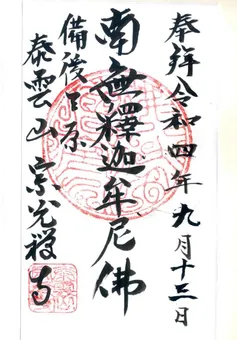 奉拜 令和四年九月十三日
南無釋迦牟尼佛
備後三原
泰雲山宗光禅寺